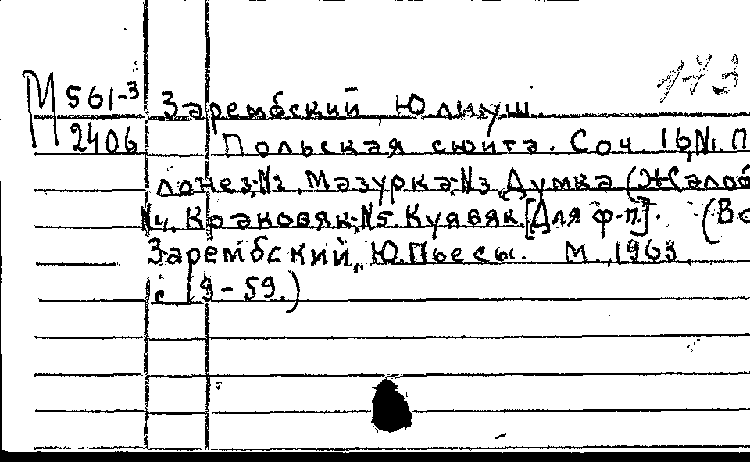 173
М 561-3
2406
Зарембский Юлиуш.
Польская сюита. Соч. 16, №1. П
лонез; №2. Мазурка; №3. Думка (Жалоб
№4. Краковяк; №5. Куявяк. [Для ф-п]. (Во
Зарембский, Ю. Пьесы. М., 1963,
с 19-59.)